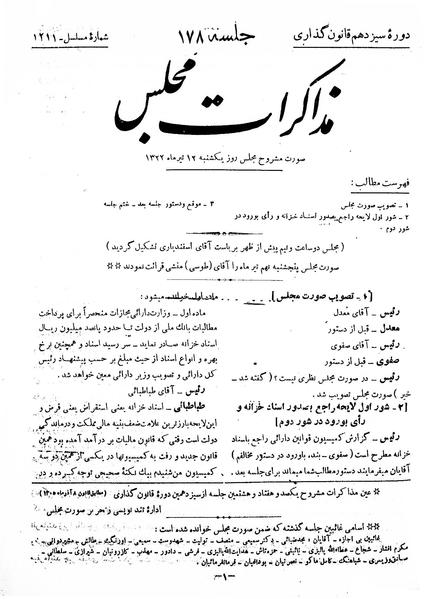 دورهٔ سیزدهم قانون گذاری
جلسهٔ ۱۷۸
شمارهٔ مسلسل - ۱۲۱۱
مذاکرات مجلس
صورت مشروح مجلس روز یکشنبه ۱۲ تیر ماه ۱۳۲۲
فهرست مطالب:
۱ - تصویب صورت مجلس
۲ - شور اول لایحه راجع بصدور اسناد خزانه و رأی بورود در
شور دوم
۳ - موقع و دستور جلسه بعد - ختم جلسه
(مجلس دو ساعت و نیم پیش از ظهر بریاست آقای اسفندیاری تشکیل گردید)
صورت مجلس پنجشنبه نهم تیر ماه را آقای (طوسی) منشی قرائت نمودند
[۱ - تصویب صورت مجلس]
رئیس - آقای معدل
معدل - قبل از دستور
رئیس - آقای صفوی
صفوی - قبل از دستور
رئیس - در صورت مجلس نظری نیست؟ (گفته شد -
خیر) صورت مجلس تصویب شد.
[۲ - شور اول لایحه راجع بصدور اسناد خزانه و
رأی بورود در شور دوم]
رئیس - گزارش کمیسیون قوانین دارائی راجع باسناد
خزانه مطرح است (صفوی - بنده، باورود در دستور مخالفم)
آقایان میفرمایند دستور مطالب شما میماند برای جلسه بعد.
ماده اول خوانده میشود:
ماده اول - وزارت دارائی مجازات منحصراً برای پرداخت
مطالبات بانک ملی از دولت تا حدود پانصد میلیون ریال
اسناد خزانه صادر نماید - سر رسید اسناد و همچنین نرخ
بهره و انواع اسناد از حیث مبلغ بر حسب پیشنهاد رئیس
کل دارائی و تصویب وزیر دارائی معین خواهد شد.
رئیس - آقای طباطبائی
طباطبائی - اسناد خزانه یعنی استقراض یعنی قرض و
این لایحه بارزترین علامت ضعف بنیه مالی مملکت و درماندگی
دولت است رفتی که قانون مالیات بر درآمد آمده بود همین
قانون جدید و رفت به کمیسیونها در یکی از همین دو سه
کمیسیون من شنیدم بیک نکتهٔ صحیحی توجه کرده و در
عین مذاکرات مشروح یکصد و هفتاد و هشتمین جلسه از سیزدهمین دورهٔ قانون گذاری
ادارهٔ تند نویسی و تحریر صورت مجلس
اسامی غائبین جلسه گذشته که ضمن صورت مجلس خوانده شده است:
غائبین بی اجازه - آقایان:
-۱-